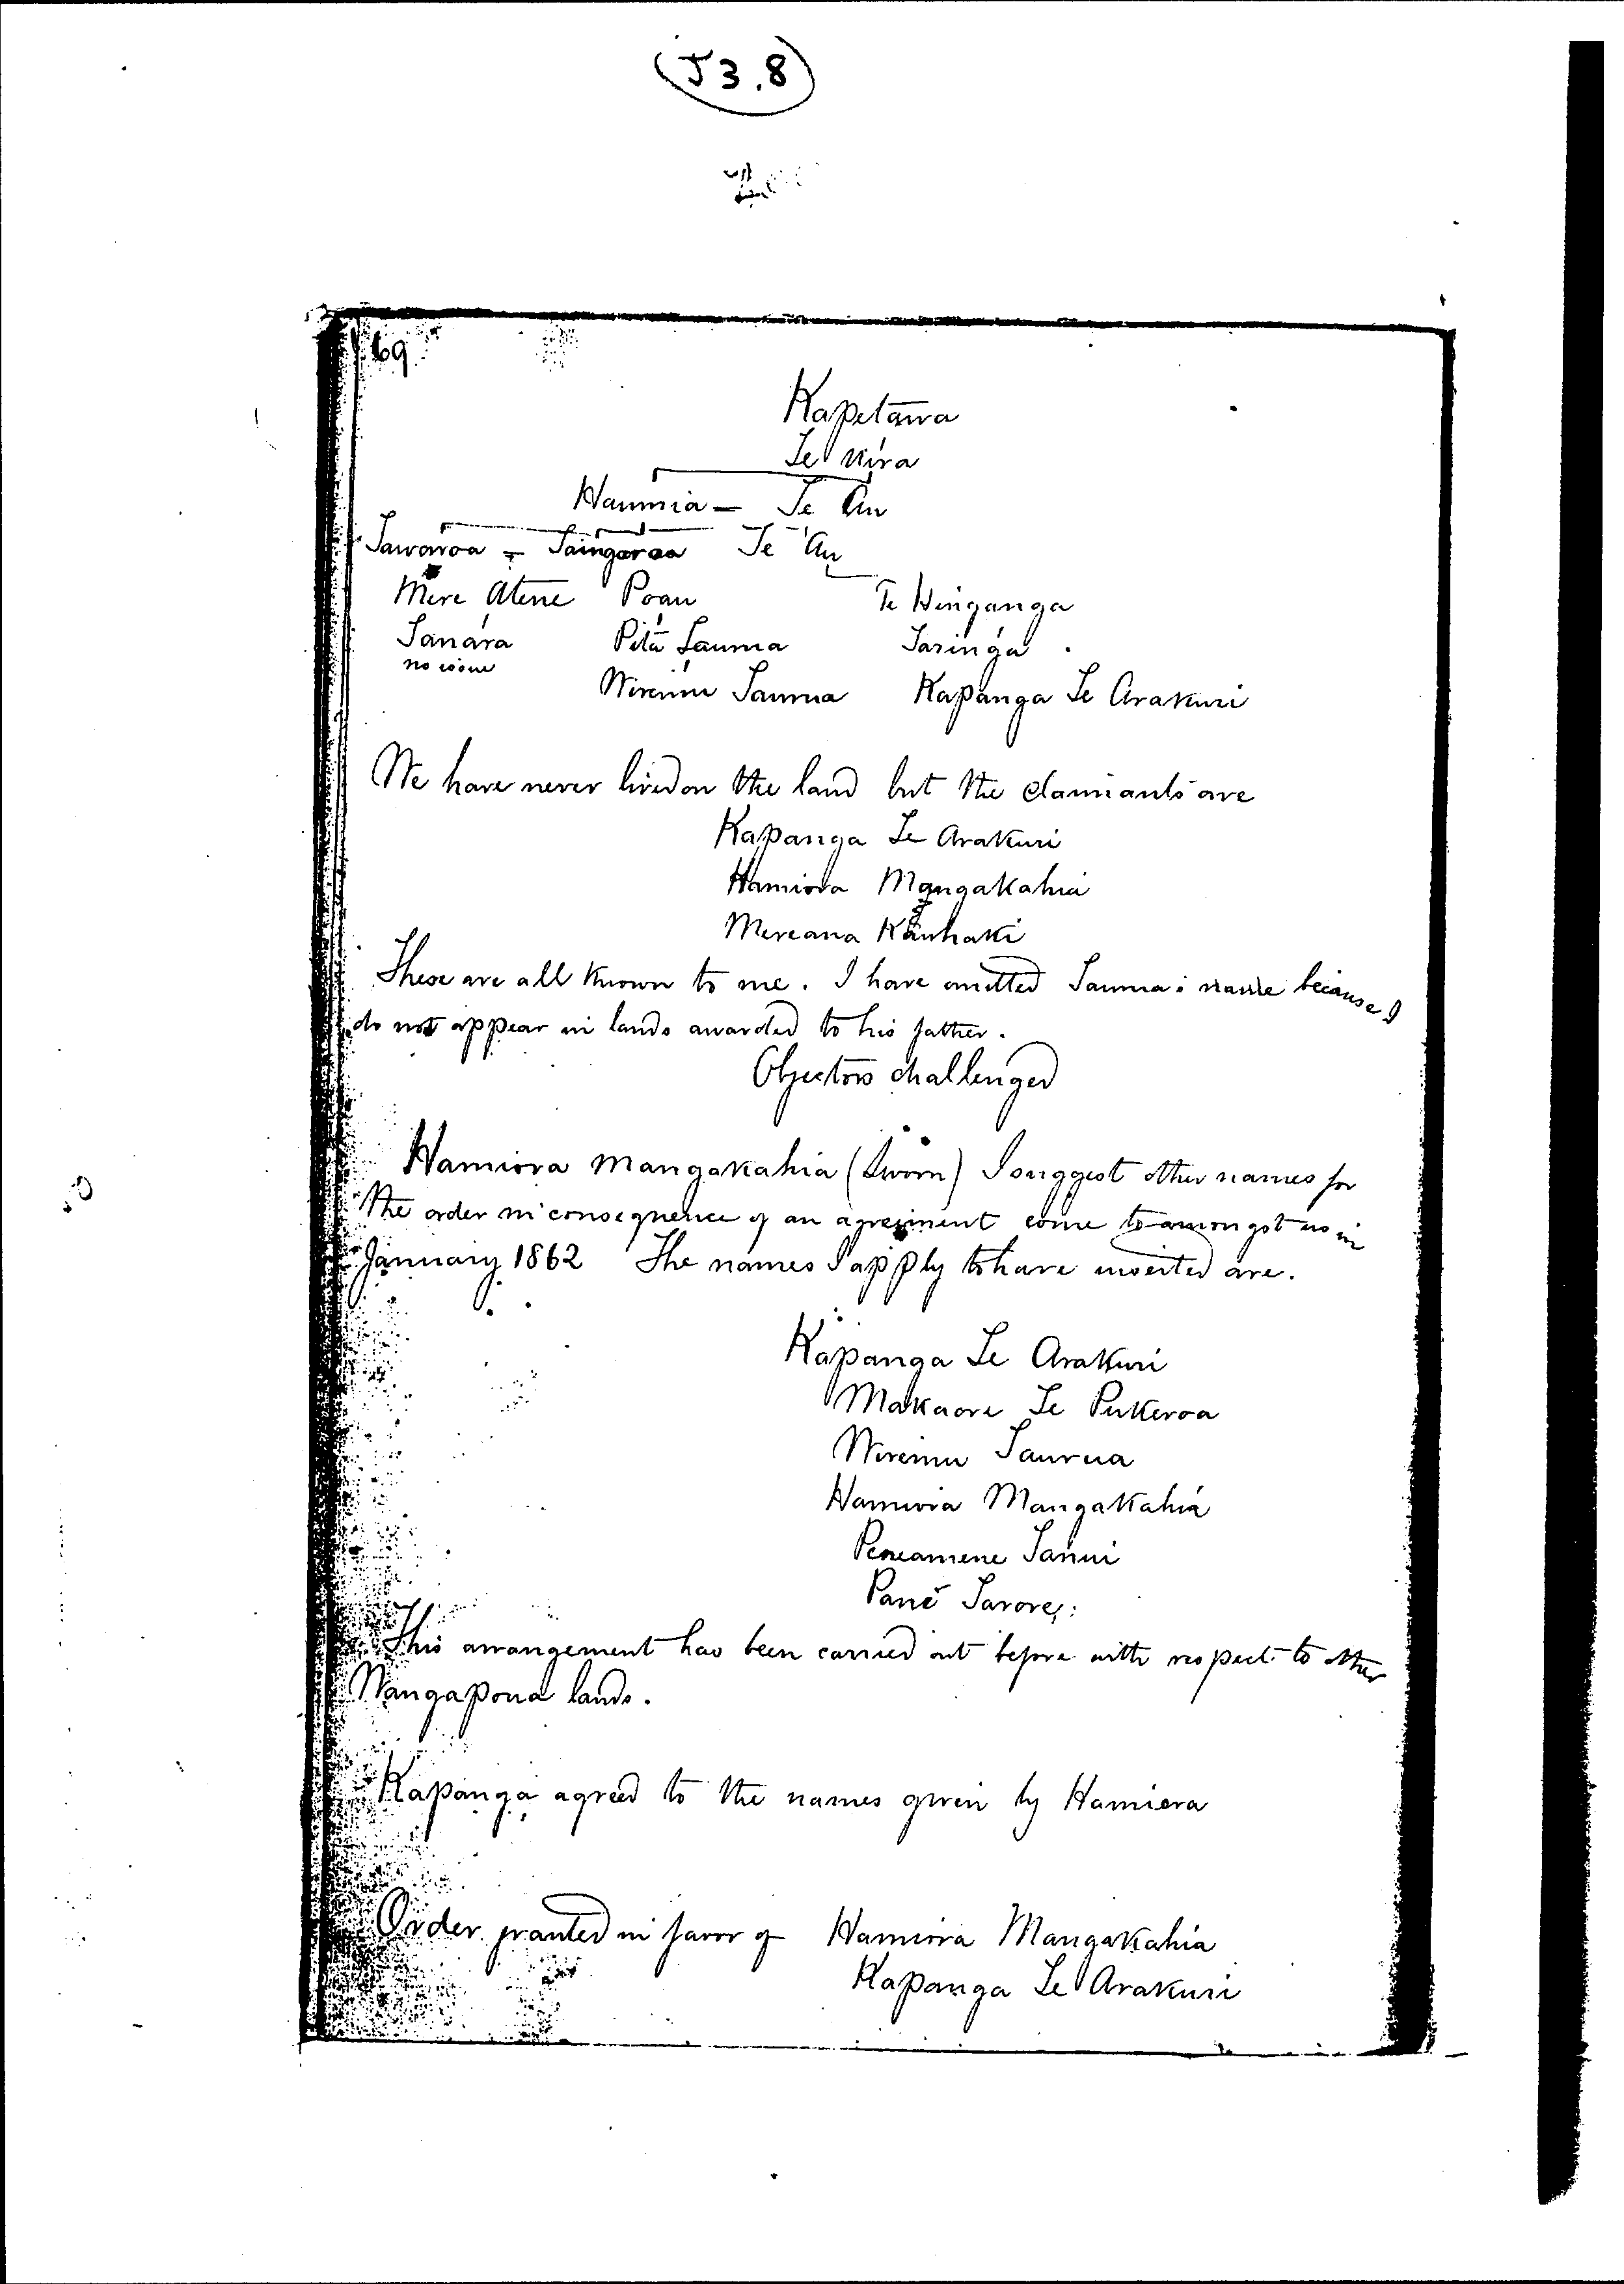 (J3.8)
69
Kapetawa
Te Kira
Haumia — Te Au
Tawaroa = Taingaraa Te Au
Mere Atene Poau Te Hinganga
Tanara Pita Taurua Taringa
no issue
Wiremu Taurua Kapanga Te Arakuri
We have never lived on the land but the claimants are
Kapanga Te Arakuri
Hamiora Mangakahia
Mereana Kauhaki
These are all known to me. I have omitted Taurua's name because I
do not appear in lands awarded to his father.
Objectors challenged
Hamiora Mangakahia (Sworn) I suggest other names for
the order in consequence of an agreement come to amongst us in
January 1862 The names I apply to have inserted are.
Kapanga Te Arakuri
Makaore Te Pukeroa
Wiremu Taurua
Hamiora Mangakahia
Peneamene Tanui
Panè Tarore
This arrangement has been carried out before with respect to other
Wangapoua lands.
Kapanga agreed to the names given by Hamiora
Order granted in favor of Hamiora Mangakahia
Kapanga Te Arakuri